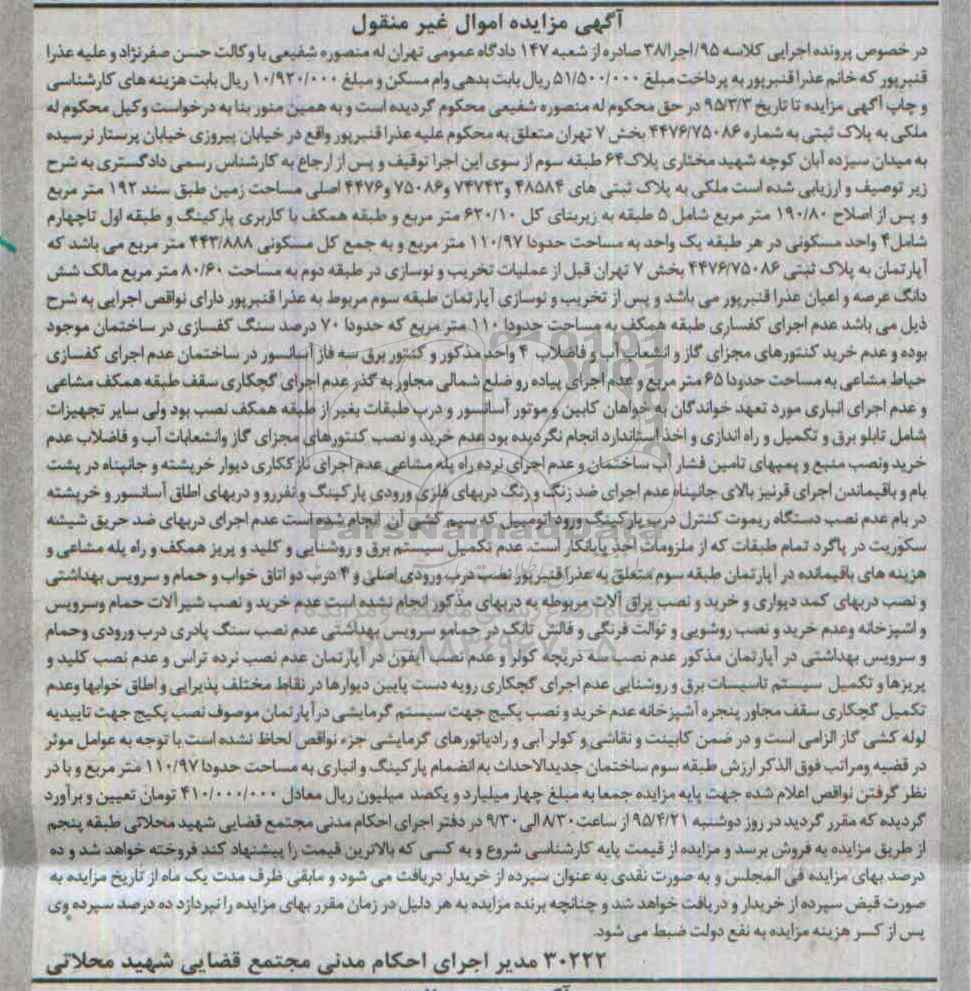 آگهی مزایده اموال غیر منقول
در خصوص پرونده اجرایی کلاسه ۹۵/اجرا/۳۸ صادره از شعبه ۱۴۷ دادگاه عمومی تهران له منصوره شفیعی با وکالت حسن صفرنژاد و علیه عذرا
قنبرپور که خانم عذرا قنبرپور به پرداخت مبلغ ۵۱/۵۰۰/۰۰۰ ریال بابت بدهی وام مسکن و مبلغ ۱۰/۹۲۰/۰۰۰ ریال بابت هزینه های کارشناسی
و چاپ آگهی مزایده تا تاریخ ۹۵/۳/۳ در حق محکوم له منصوره شفیعی محکوم گردیده است و به همین منور بنا به درخواست وکیل محکوم له
ملکی به پلاک ثبتی به شماره ۴۴۷۶/۷۵۰۸۶ بخش ۷ تهران متعلق به محکوم علیه عذرا قنبرپور واقع در خیابان پیروزی خیابان پرستار نرسیده
به میدان سیزده آبان کوچه شهید مختاری پلاک۶۴ طبقه سوم از سوی این اجرا توقیف و پس از ارجاع به کارشناس رسمی دادگستری به شرح
زیر توصیف و ارزیابی شده است ملکی به پلاک ثبتی های ۴۸۵۸۴ و ۷۴۷۴۳ و ۷۵۰۸۶ و ۴۴۷۶ اصلی مساحت زمین طبق سند ۱۹۲ متر مربع
و پس از اصلاح ۱۹۰/۸۰ متر مربع شامل ۵ طبقه به زیربنای کل ۶۲۰/۱۰ متر مربع و طبقه همکف با کاربری پارکینگ و طبقه اول تاچهارم
شامل۴ واحد مسکونی در هر طبقه یک واحد به مساحت حدودا ۱۱۰/۹۷ متر مربع و به جمع کل مسکونی ۴۴۳/۸۸۸ متر مربع می باشد که
آپارتمان به پلاک ثبتی ۴۴۷۶/۷۵۰۸۶ بخش ۷ تهران قبل از عملیات تخریب و نوسازی در طبقه دوم به مساحت ۸۰/۶۰ متر مربع مالک شش
دانگ عرصه و اعیان عذرا قنبرپور می باشد و پس از تخریب و نوسازی آپارتمان طبقه سوم مربوط به عذرا قنبرپور دارای نواقص اجرایی به شرح
ذیل می باشد عدم اجرای کفساری طبقه همکف به مساحت حدودا ۱۱۰ متر مربع که حدودا ۷۰ درصد سنگ کفسازی در ساختمان موجود
بوده و عدم خرید کنتورهای مجزای گاز و انشعاب آب و فاضلاب ۴ واحد مذکور و کنتور برق سه فاز آسانسور در ساختمان عدم اجرای کفسازی
حیاط مشاعی به مساحت حدودا ۶۵ متر مربع و عدم اجرای پیاده رو ضلع شمالی مجاور به گذر عدم اجرای گچکاری سقف طبقه همکف مشاعی
و عدم اجرای انباری مورد تعهد خواندگان به خواهان کابین و موتور آسانسور و درب طبقات بغیر از طبقه همکف نصب بود ولی سایر تجهیزات
شامل تابلو برق و تکمیل و راه اندازی و اخذ استاندارد انجام نگردیده بود عدم خرید و نصب کنتورهای مجزای گاز وانشعابات آب و فاضلاب عدم
خرید ونصب منبع و پمپهای تامین فشار آب ساختمان و عدم اجرای نرده راه پله مشاعی عدم اجرای نازککاری دیوار خرپشته و جانپناه در پشت
بام و باقیماندن اجرای قرنیز بالای جانپناه عدم اجرای ضد زنگ و رنگ دربهای فلزی ورودی پارکینگ و نفررو و دربهای اطاق آسانسور و خرپشته
در بام عدم نصب دستگاه ریموت کنترل درب پارکینگ ورود اتومبیل که سیم کشی آن انجام شده است عدم اجرای دربهای ضد حریق شیشه
سکوریت در پاگرد تمام طبقات که از ملزومات اخذ پایانکار است. عدم تکمیل سیستم برق و روشنایی و کلید و پریز همکف و راه پله مشاعی و
هزینه های باقیمانده در آپارتمان طبقه سوم متعلق به عذرا قنبرپور نصب درب ورودی اصلی و ۴ درب دو اتاق خواب و حمام و سرویس بهداشتی
و نصب دربهای کمد دیواری و خرید و نصب یراق آلات مربوطه به دربهای مذکور انجام نشده است عدم خرید و نصب شیرآلات حمام وسرویس
و اشپزخانه وعدم خرید و نصب روشویی و توالت فرنگی و فالش تانگ در حمامو سرویس بهداشتی عدم نصب سنگ پادری درب ورودی وحمام
و سرویس بهداشتی در آپارتمان مذکور عدم نصب سه دریچه کولر و عدم نصب آیفون در آپارتمان عدم نصب نرده تراس و عدم نصب کلید و
پریزها و تکمیل سیستم تاسیسات برق و روشنایی عدم اجرای گچکاری رویه دست پایین دیوارها در نقاط مختلف پذیرایی و اطاق خوابها وعدم
تکمیل گچکاری سقف مجاور پنجره آشپزخانه عدم خرید و نصب پکیج جهت سیستم گرمایشی درآپارتمان موصوف نصب پکیج جهت تاییدیه
لوله کشی گاز الزامی است و در ضمن کابینت و نقاشی و کولر آبی و رادیاتورهای گرمایشی جزء نواقص لحاظ نشده است با توجه به عوامل موثر
در قضیه ومراتب فوق الذکر ارزش طبقه سوم ساختمان جدیدالاحداث به انضمام پارکینگ و انباری به مساحت حدودا ۱۱۰/۹۷ متر مربع و با در
نظر گرفتن نواقص اعلام شده جهت پایه مزایده جمعا به مبلغ چهار میلیارد و یکصد میلیون ریال معادل ۴۱۰/۰۰۰/۰۰۰ تومان تعیین و برآورد
گردیده که مقرر گردید در روز دوشنبه ۹۵/۴/۲۱ از ساعت۸/۳۰ الی۹/۳۰ در دفتر اجرای احکام مدنی مجتمع قضایی شهید محلاتی طبقه پنجم
از طریق مزایده به فروش برسد و مزایده از قیمت پایه کارشناسی شروع و به کسی که بالاترین قیمت را پیشنهاد کند فروخته خواهد شد و ده
درصد بهای مزایده فی المجلس و به صورت نقدی به عنوان سپرده از خریدار دریافت می شود و مابقی ظرف مدت یک ماه از تاریخ مزایده به
صورت قبض سپرده از خریدار و دریافت خواهد شد و چنانچه برنده مزایده به هر دلیل در زمان مقرر بهای مزایده را نپردازد ده درصد سپرده وی
پس از کسر هزینه مزایده به نفع دولت ضبط می شود.
۳۰۲۲۲ مدیر اجرای احکام مدنی مجتمع قضایی شهید محلاتی
ParsNamadData